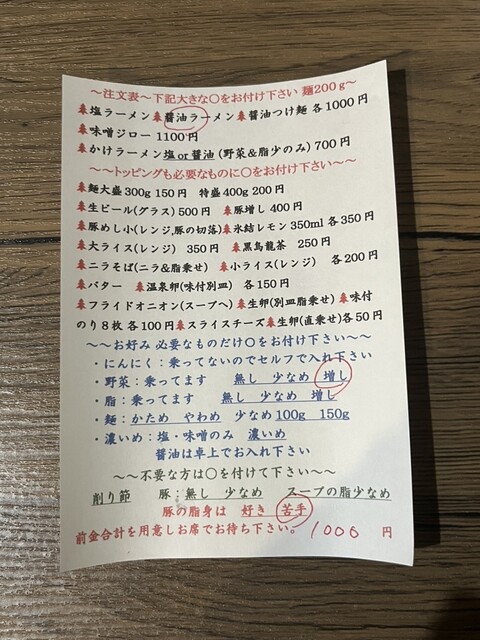 ～注文表～下記大きな○をお付け下さい 麺200g～
塩ラーメン 醤油ラーメン 醤油つけ麺 各1000円
味噌ジロー 1100円
かけラーメン塩or醤油(野菜&脂少のみ)700円
～～トッピングも必要なものに○をお付け下さい～～
麺大盛300g 150円 特盛400g 200円
生ビール(グラス)500円 豚増し400円
豚めし小(レンジ,豚の切落) 氷結レモン350ml各350円
大ライス(レンジ) 350円 黒烏龍茶 250円
ニラそば(ニラ&脂乗せ) 小ライス(レンジ) 各200円
バター 温泉卵(味付別皿) 各150円
フライドオニオン(スープへ) 生卵(別皿脂乗せ) 味付
のり8枚 各100円 スライスチーズ 生卵(直乗せ)各50円
～～お好み 必要なものだけ○をお付け下さい～～
・にんにく:乗ってないのでセルフで入れ下さい
・野菜:乗ってます 無し 少なめ 増し
・脂:乗ってます 無し 少なめ 増し
・麺:かため やわめ 少なめ100g 150g
・濃いめ:塩・味噌のみ 濃いめ
醤油は卓上でお入れ下さい
～～不要な方は○を付けて下さい～～
削り節 豚:無し 少なめ スープの脂少なめ
豚の脂身は 好き 苦手
前金合計を用意しお席でお待ち下さい。1000 円